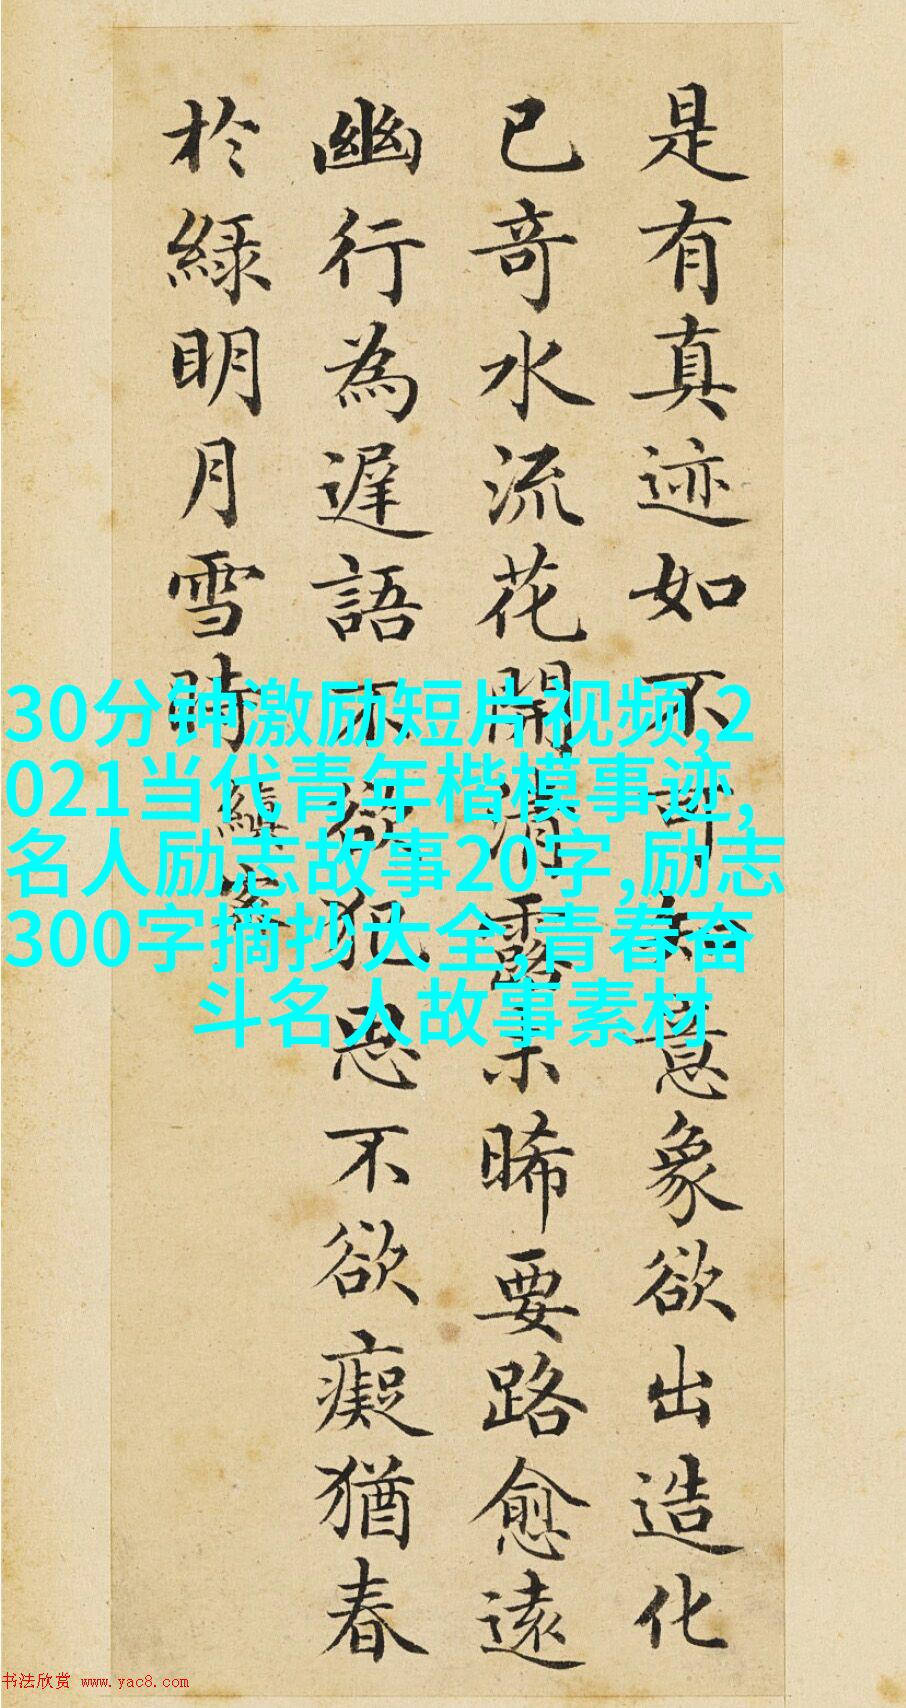 是有真迹如不可知意象欲出造化
已奇水流花開清露未晞要路愈遠
幽行為遲語不欲犯思不欲癡猶春
於綠明月雪時縝密
30分钟激励短片视频,2
021当代青年楷模事迹,
名人励志故事20字,励志
300字摘抄大全,青春奋
斗名人故事素材
书法欣赏 www.yac8.com